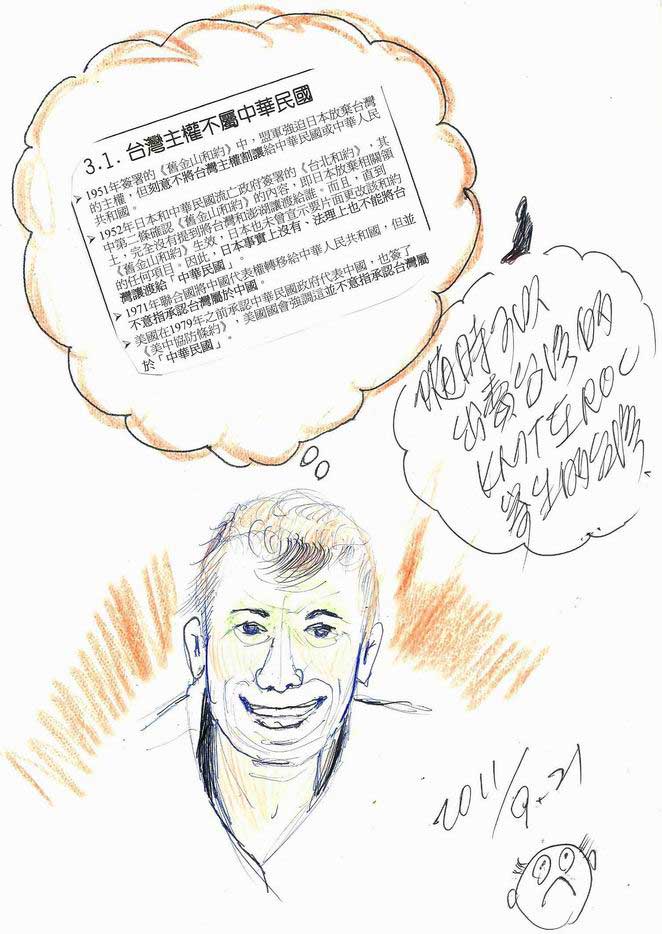 3.1. 台灣主權不屬中華民國
➤ 1951年簽署的《舊金山和約》中，盟軍強迫日本放棄台灣
的主權，但刻意不將台灣主權割讓給中華民國或中華人民
共和國。
➤ 1952年日本和中華民國流亡政府簽署的《台北和約》，其
中第二條確認《舊金山和約》的內容，即日本放棄相關領
土，完全沒有提到將台灣和澎湖讓渡給誰。而且，直到
《舊金山和約》生效，日本也未曾宣示要片面更改該和約
的任何項目。因此，日本事實上沒有、法理上也不能將台
灣讓渡給「中華民國」。
➤ 1971年聯合國將中國代表權轉移給中華人民共和國，但並
不意指承認台灣屬於中國。
➤ 美國在1979年之前承認中華民國政府代表中國，也簽了
《美中協防條約》，美國國會強調這並不意指承認台灣屬
於「中華民國」。
隨時可以
出賣台灣的
KMT在ROC
寄生的台灣
2011/9.21